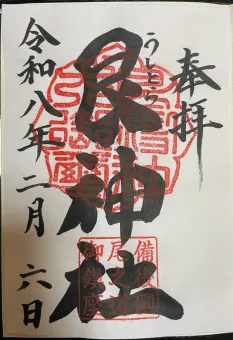 奉拝
うしとら
艮神社
令和八年二月六日
備後國
尾之道
御鎮座